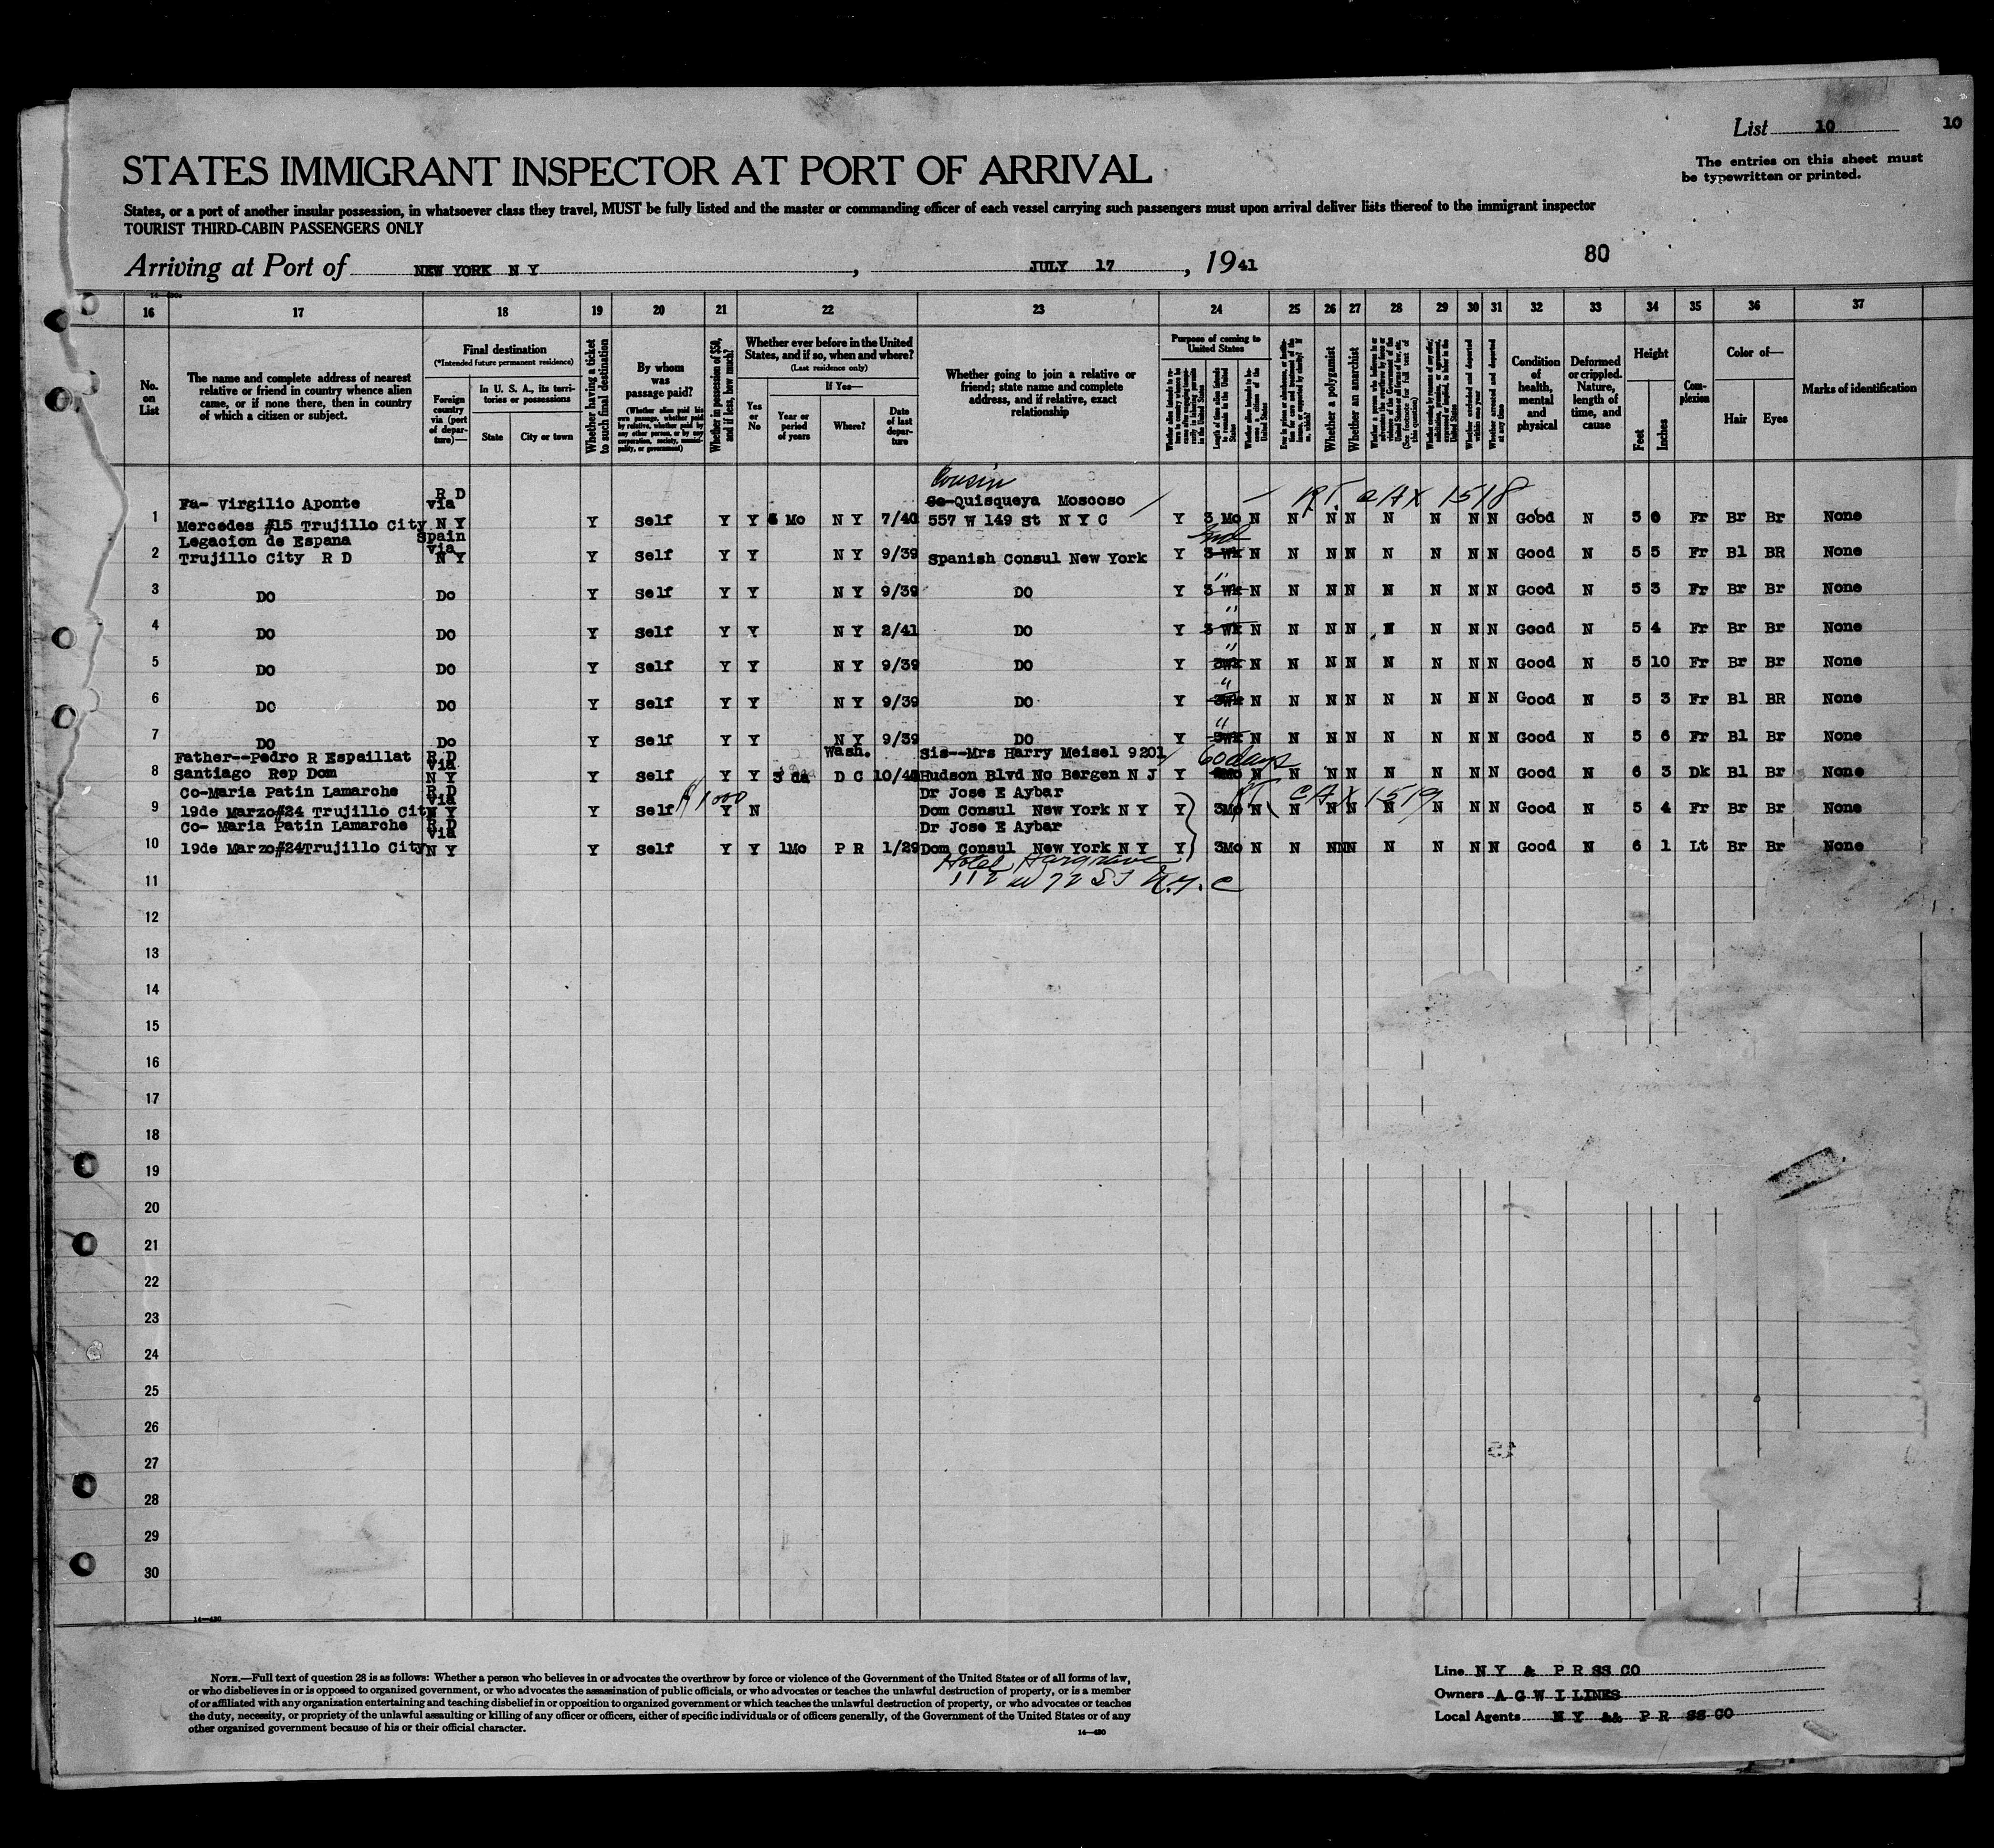 List 10
10
The entries on this sheet must
be typewritten or printed.
STATES IMMIGRANT INSPECTOR AT PORT OF ARRIVAL
States, or a port of another insular possession, in whatsoever class they travel, MUST be fully listed and the master or commanding officer of each vessel carrying such passengers must upon arrival deliver lists thereof to the immigrant inspector
TOURIST THIRD-CABIN PASSENGERS ONLY
80
Arriving at Port of NEW YORK N Y , JULY 17 , 1941
16 17 18 19 20 21 22 23 24 25 26 27 28 29 30 31 32 33 34 35 36 37
No. on List
The name and complete address of nearest relative or friend in country whence alien came, or if none there, then in country of which a citizen or subject.
Final destination
(*Intended future permanent residence)
Foreign country via (port of departure)—
In U. S. A., its territories or possessions
State
City or town
Whether having a ticket to such final destination
By whom was passage paid?
(Whether alien paid his own passage, whether paid by relative, whether paid by any other person, or by any corporation, society, municipality, or government)
Whether in possession of $50, and if less, how much?
Whether ever before in the United States, and if so, when and where?
(Last residence only)
If Yes—
Yes or No
Year or period of years
Where?
Date of last departure
Whether going to join a relative or friend; state name and complete address, and if relative, exact relationship
Purpose of coming to United States
Length of time alien intends to remain in the United States
Whether alien intends to become a citizen of the United States
Whether a polygamist
Whether an anarchist
(See footnote for full text of this question)
Whether excluded and deported within one year
Whether arrested and deported at any time
Condition of health, mental and physical
Deformed or crippled. Nature, length of time, and cause
Height
Feet
Inches
Complexion
Color of—
Hair
Eyes
Marks of identification
Cousin
R T CAX 1518
Fa- Virgilio Aponte R D via Quisqueya Moscoso
1 Mercedes #15 Trujillo City N Y Y Self Y Y 6 Mo N Y 7/40 557 W 149 St N Y C Y 3 Mo N N N N N N N N Good N 5 0 Fr Br Br None
Legacion de Espana Spain via
2 Trujillo City R D N Y Y Self Y Y N Y 9/39 Spanish Consul New York Y 3 Wk N N N N N N N N Good N 5 5 Fr Bl BR None
3 DO Do Y Self Y Y N Y 9/39 DO Y 3 Wk N N N N N N N N Good N 5 3 Fr Br Br None
4 DO DO Y Self Y Y N Y 2/41 DO Y 3 Wk N N N N N N N N Good N 5 4 Fr Br Br None
5 DO DO Y Self Y Y N Y 9/39 DO Y 3Wk N N N N N N N N Good N 5 10 Fr Br Br None
6 DO DO Y Self Y Y N Y 9/39 DO Y 3Wk N N N N N N N N Good N 5 3 Fr Bl BR None
7 DO Do Y Self Y Y N Y 9/39 DO Y 3Wk N N N N N N N N Good N 5 6 Fr Bl Br None
Father--Pedro R Espaillat R D via Wash. Sis--Mrs Harry Meisel 9201 60 days
8 Santiago Rep Dom N Y Y Self Y Y 3 da D C 10/40 Hudson Blvd No Bergen N J Y N N N N N N N N Good N 6 3 Dk Bl Br None
Co-Maria Patin Lamarche R D via $1000 Dr Jose E Aybar RT CAX 1519
9 19de Marzo#24 Trujillo City N Y Y Self Y N Dom Consul New York N Y Y 3Mo N N N N N N N N Good N 5 4 Fr Br Br None
Co- Maria Patin Lamarche R D via Dr Jose E Aybar
10 19de Marzo#24Trujillo City N Y Y Self Y Y 1Mo P R 1/29 Dom Consul New York N Y Y 3Mo N N N N N N N N Good N 6 1 Lt Br Br None
Hotel Hargrave
11 112 W 72 ST N.Y.C
12
13
14
15
16
17
18
19
20
21
22
23
24
25
26
27
28
29
30
14—430
NOTE.—Full text of question 28 is as follows: Whether a person who believes in or advocates the overthrow by force or violence of the Government of the United States or of all forms of law,
or who disbelieves in or is opposed to organized government, or who advocates the assassination of public officials, or who advocates or teaches the unlawful destruction of property, or is a member
of or affiliated with any organization entertaining and teaching disbelief in or opposition to organized government or which teaches the unlawful destruction of property, or who advocates or teaches
the duty, necessity, or propriety of the unlawful assaulting or killing of any officer or officers, either of specific individuals or of officers generally, of the Government of the United States or of any
other organized government because of his or their official character.
14—430
Line N Y & P R SS CO
Owners A G W I LINES
Local Agents N Y && P R SS CO